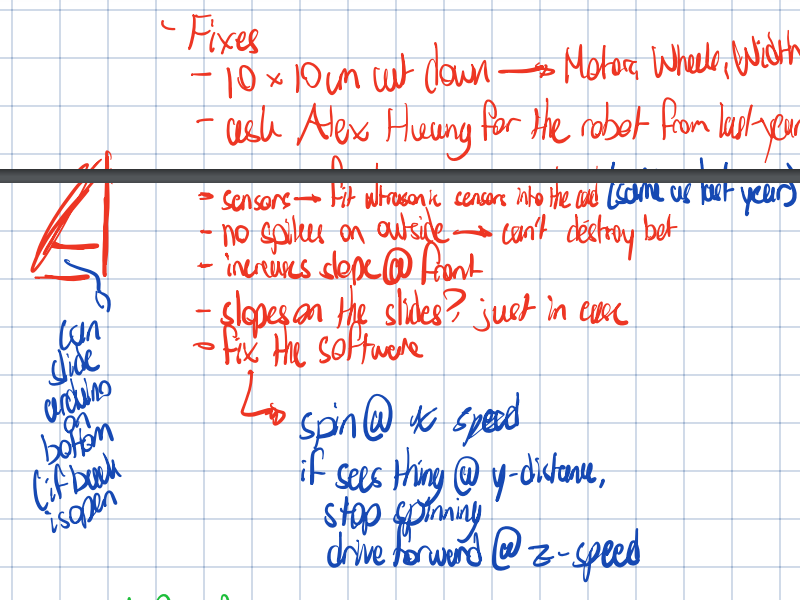 - Fixes
- 10 x 10cm cut down → Motors, Wheels, Width
- ask Alex Huang for the robot from last year
- sensors → fit ultrasonic sensors into the cad (same as last years)
- no spikes on outside → can't destroy bot
- increases slope @ front
- slopes on the slides? just in case
- fix the software
spin @ x speed
if sees thing @ y-distance,
stop spinning
drive forward @ z-speed
can
slide
arduino
on
bottom
(if back
is open